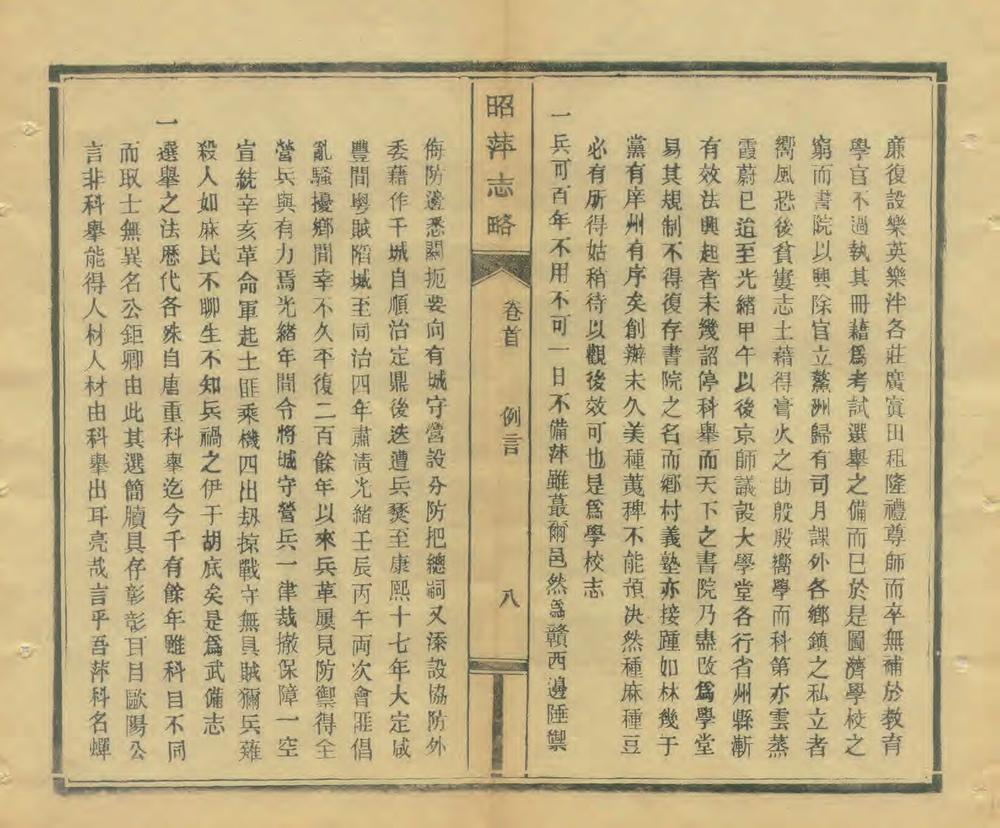 廉復設樂英樂泮各莊廣寘田租隆禮尊師而卒無補於教育
學官不過執其冊藉爲考試選舉之備而已於是圖濟學校之
窮而書院以興除官立鰲洲歸有司月課外各鄉鎮之私立者
嚮風恐後貧寠志士藉得膏火之助殷殷嚮學而科第亦雲蒸
霞蔚已迨至光緒甲午以後京師議設大學堂各行省州縣漸
有效法興起者未幾詔停科舉而天下之書院乃盡改爲學堂
易其規制不得復存書院之名而鄉村義塾亦接踵如林幾于
黨有庠州有序矣創辦未久美種荑稗不能預决然種麻種豆
必有所得姑稍待以觀後效可也是爲學校志
一兵可百年不用不可一日不備萍雖蕞爾邑然爲贛西邊陲禦
昭萍志略
卷首
例言
八
侮防邊悉關扼要向有城守營設分防把總祠又添設協防外
委藉作干城自順治定鼎後迭遭兵燹至康熙十七年大定咸
豐間粵賊陷城至同治四年肅清光緒壬辰丙午両次會匪倡
亂騷擾鄉間幸不久平復二百餘年以來兵革屢見防禦得全
營兵與有力焉光緒年間令將城守營兵一律裁撤保障一空
宣統辛亥革命軍起土匪乘機四出刼掠戰守無具賊獮兵薙
殺人如麻民不聊生不知兵禍之伊于胡底矣是爲武備志
一選舉之法歷代各殊自唐重科舉迄今千有餘年雖科目不同
而取士無異名公鉅卿由此其選簡牘具存彰彰耳目歐陽公
言非科舉能得人材人材由科舉出耳亮哉言乎吾萍科名蟬